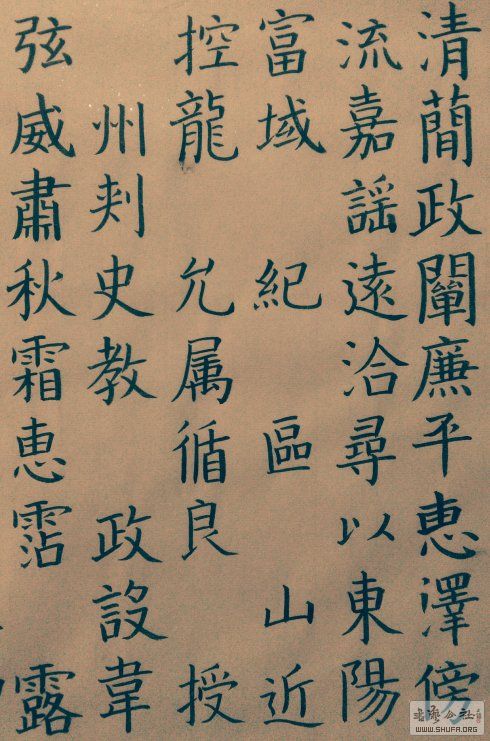 清蕳政闡廉平惠澤傍
流嘉謡遠洽尋以東陽
富域 紀 區 山近
控龍 允属循良 授
州刾史教 政設韋
弦威肅秋霜惠霑 露
WWW.SHUFA.ORG